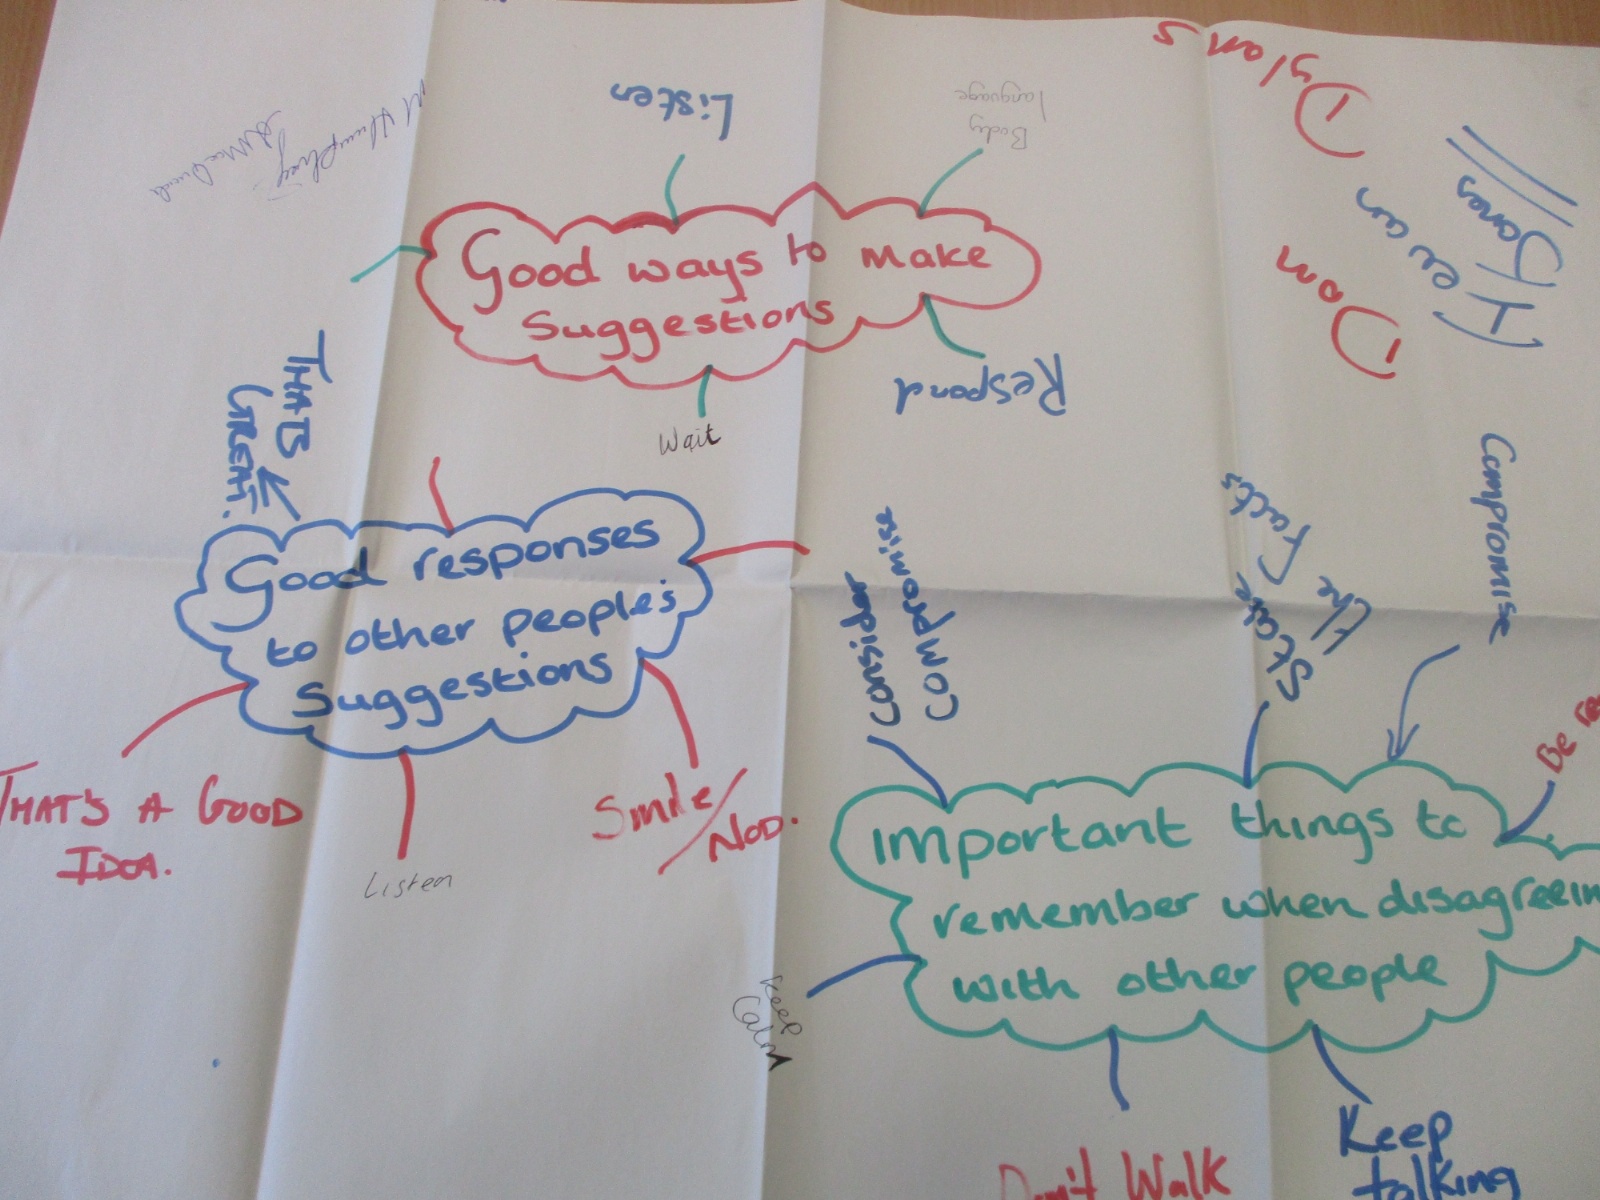 Dylans
Listen
Body
language
Jones
Dom
Good ways to make
Suggestions
Respond
Wait
THATS
GREAT.
Good responses
to other peoples
Suggestions
THAT'S A GOOD
IDEA.
Listen
Smile/
NOD.
consider
compromise
State
the Facts
Compromise
Be
Important things to
remember when disagreein
with other people
Keep
Calm
Don't Walk
Keep
talking